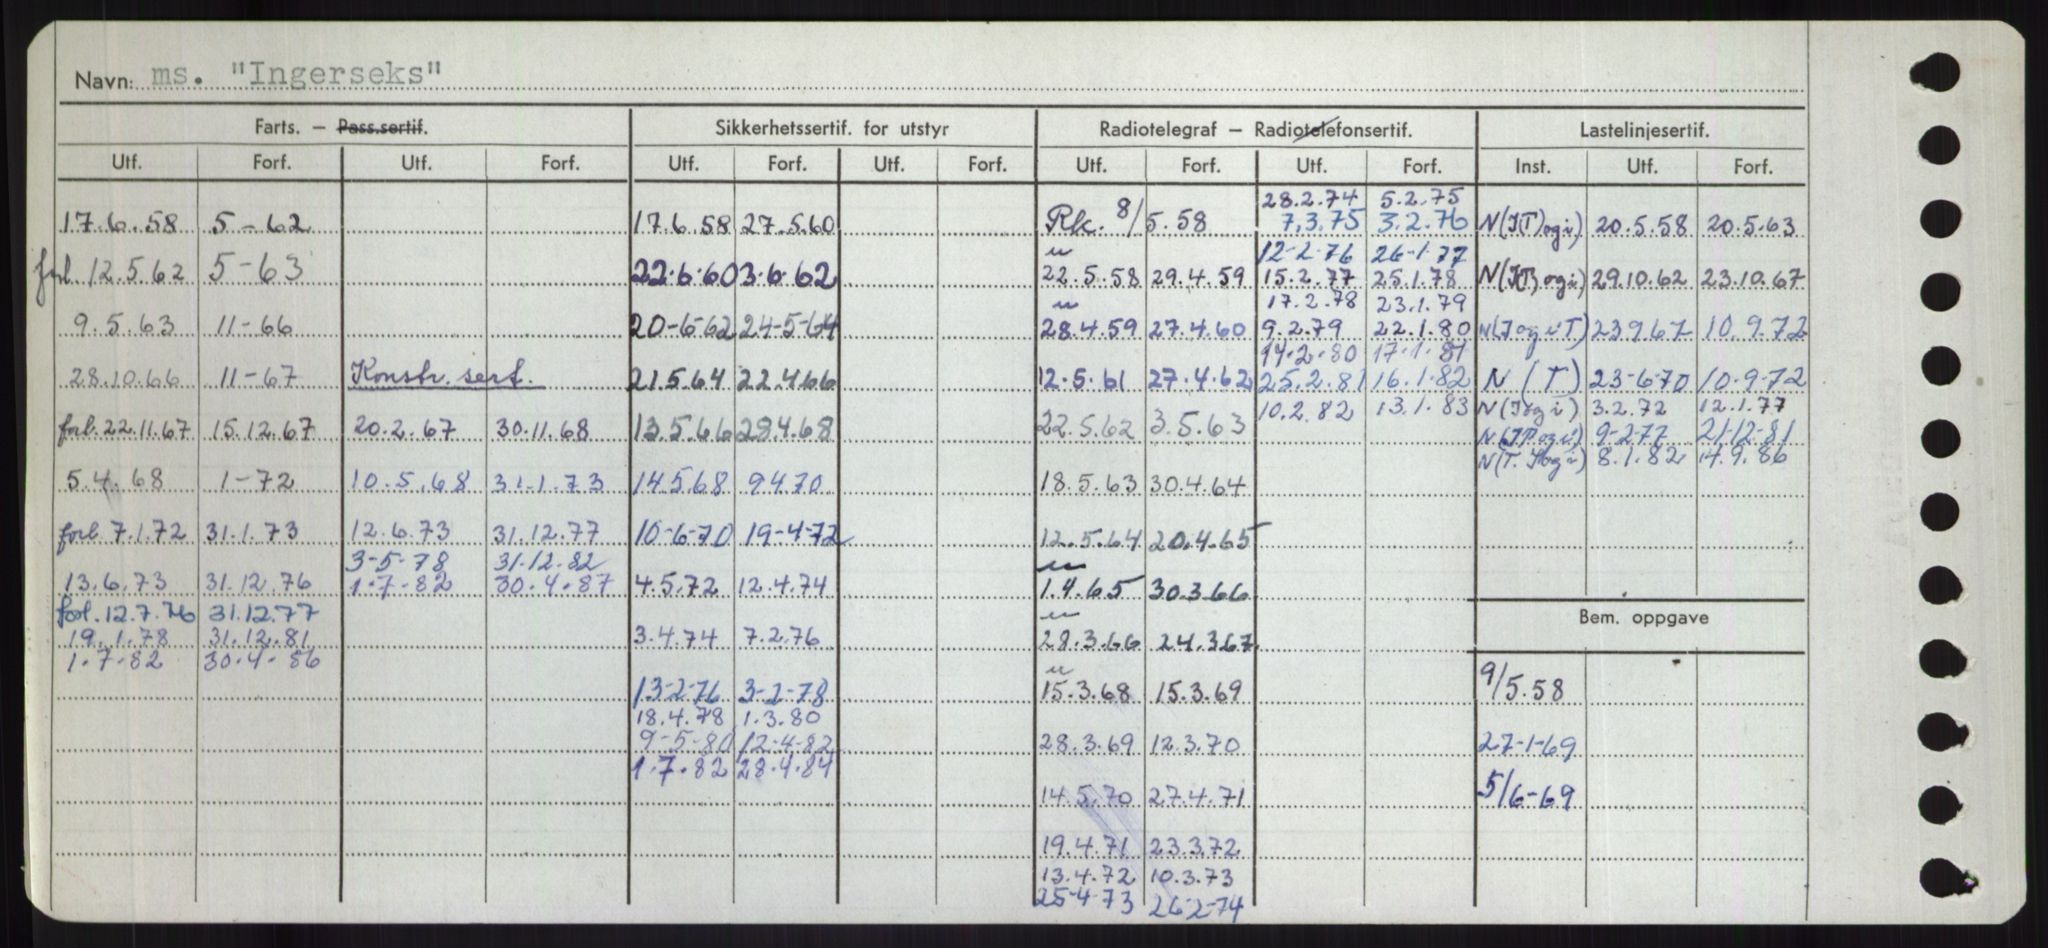 Navn: ms. "Ingerseks"
Farts. – Pass.sertif. Sikkerhetssertif. for utstyr Radiotelegraf – Radiotelefonsertif. Lastelinjesertif.
Utf. Forf. Utf. Forf. Utf. Forf. Utf. Forf. Utf. Forf. Utf. Forf. Inst. Utf. Forf.
28.2.74 5.2.75
17.6.58 5-62 17.6.58 27.5.60 Rk. 8/5.58 7.3.75 3.2.76 N(JT) og i) 20.5.58 20.5.63
12-2-76 26-1-77
forl. 12.5.62 5-63 22.6.60 3.6.62 22.5.58 29.4.59 15.2.77 25.1.78 29.10.62 23.10.67
17.2.78 23.1.79
9.5.63 11-66 20-6-62 24-5-64 28.4.59 27.4.60 9.2.79 22.1.80 23.9.67 10.9.72
14.2.80 17.1.81
28.10.66 11-67 Konstr. sert. 21.5.64 22.4.66 12.5.61 27.4.62 25.2.81 16.1.82 N (T) 23-6-70 10-9-72
10.2.82 13.1.83 N(J og i) 3.2.72 12.1.77
forl. 22.11.67 15.12.67 20.2.67 30.11.68 13.5.66 28.4.68 22.5.62 3.5.63 9-2-77 21-12-81
8.1.82 14.9.86
5.4.68 1-72 10.5.68 31.1.73 14.5.68 9.4.70 18.5.63 30.4.64
forl. 7.1.72 31.1.73 12.6.73 31.12.77 10-6-70 19-4-72 12.5.64 20.4.65
3-5-78 31.12.82
13.6.73 31.12.76 1-7-82 30.4.87 4.5.72 12.4.74 1.4.65 30.3.66
forl. 12.7.76 31.12.77
Bem. oppgave
19.1.78 31.12.81 3.4.74 7.2.76 28.3.66 24.3.67
1.7.82 30.4.86
13-2-76 3-2-78 15.3.68 15.3.69 9/5.58
18.4.78 1.3.80
9-5-80 12-4-82 28.3.69 12.3.70 27-1-69
1.7.82 28.4.84
14.5.70 27.4.71 5/6-69
19.4.71 23.3.72
13.4.72 10.3.73
25-4-73 26-2-74